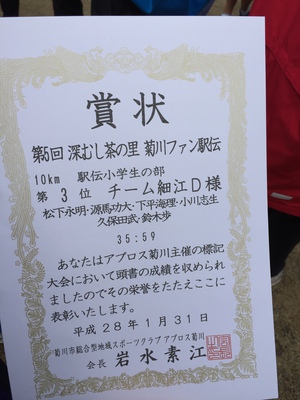 賞状
第5回 深むし茶の里 菊川ファン駅伝
10km 駅伝小学生の部
第 3 位 チーム細江D様
松下永明・源馬功大・下平海理・小川志生
久保田武・鈴木歩
35:59
あなたはアプロス菊川主催の標記
大会において頭書の成績を収められ
ましたのでその栄誉をたたえここに
表彰いたします。
平成28年1月31日
菊川市総合型地域スポーツクラブアプロス菊川
会長 岩水素江